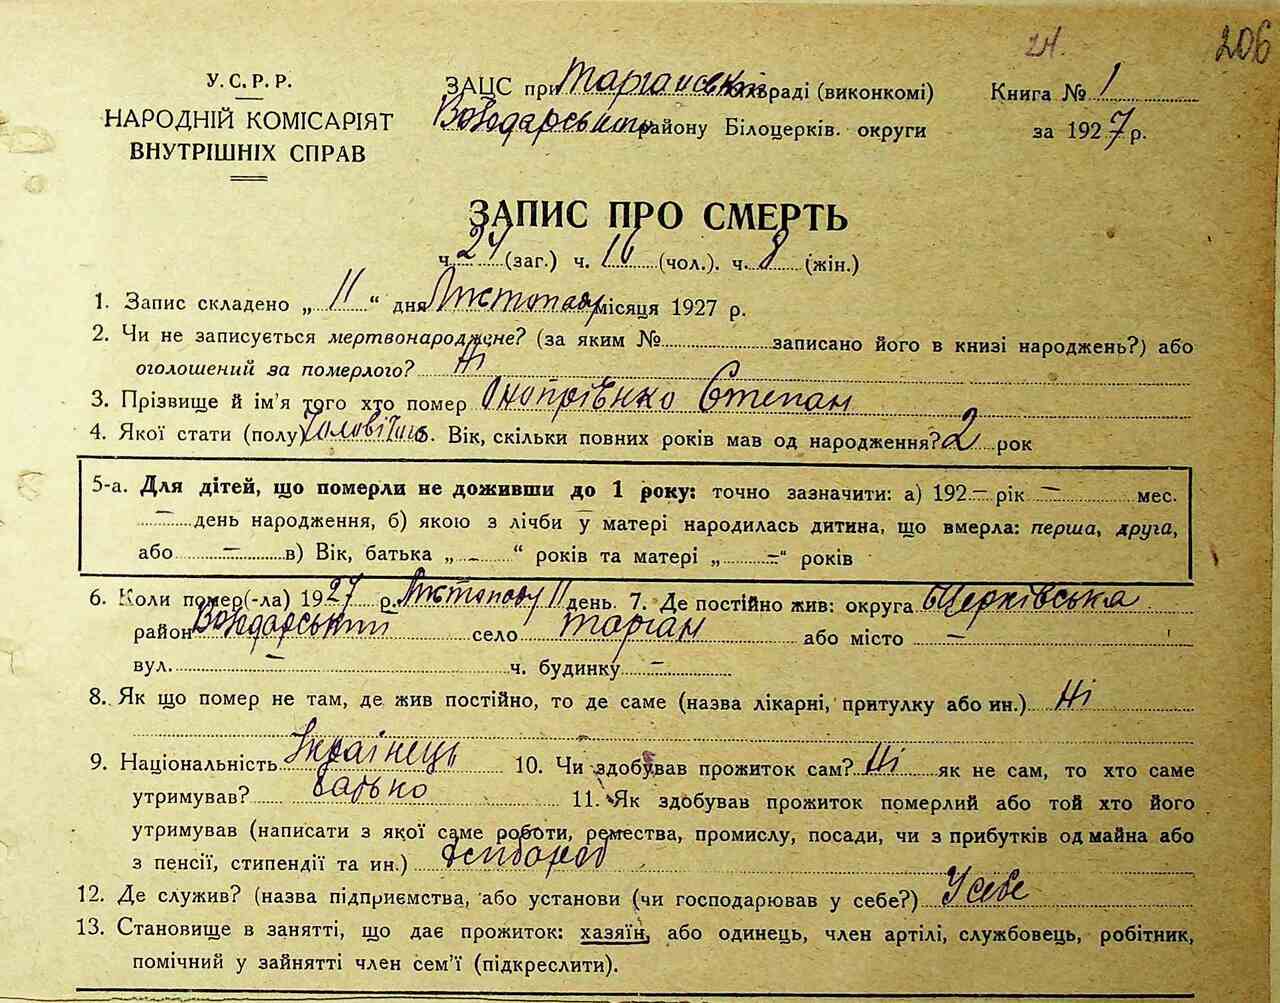 24. 206
У.С.Р.Р.
НАРОДНІЙ КОМІСАРІЯТ
ВНУТРІШНІХ СПРАВ
ЗАЦС при Тарганській сільраді (виконкомі)
Володарського району Білоцерків. округи
Книга № 1
за 1927 р.
ЗАПИС ПРО СМЕРТЬ
ч. 24 (заг.) ч. 16 (чол.). ч. 8 (жін.)
1. Запис складено „ 11 “ дня Листопаду місяця 1927 р.
2. Чи не записується мертвонароджене? (за яким № записано його в книзі народжень?) або
оголошений за померлого? Ні
3. Прізвище й ім'я того хто помер Онопрієнко Степан
4. Якої стати (полу) Чоловічого 5. Вік, скільки повних років мав од народження? 2 рок
5-а. Для дітей, що померли не доживши до 1 року: точно зазначити: а) 192 — рік — мес.
— день народження, б) якою з лічби у матері народилась дитина, що вмерла: перша, друга,
або — в) Вік, батька „ — “ років та матері „ — “ років
6. Коли помер(-ла) 1927 р. Листопаду 11 день. 7. Де постійно жив: округа БЦерківська
район Володарський село Тарган або місто —
вул. — ч. будинку —
8. Як що помер не там, де жив постійно, то де саме (назва лікарні, притулку або ин.) Ні
9. Національність Українець 10. Чи здобував прожиток сам? Ні як не сам, то хто саме
утримував? батько 11. Як здобував прожиток померлий або той хто його
утримував (написати з якої саме роботи, ремества, промислу, посади, чи з прибутків од майна або
з пенсії, стипендії та ин.) хлібороб
12. Де служив? (назва підприємства, або установи (чи господарював у себе?) У себе
13. Становище в занятті, що дає прожиток: хазяїн, або одинець, член артілі, службовець, робітник,
помічний у зайнятті член сем'ї (підкреслити).